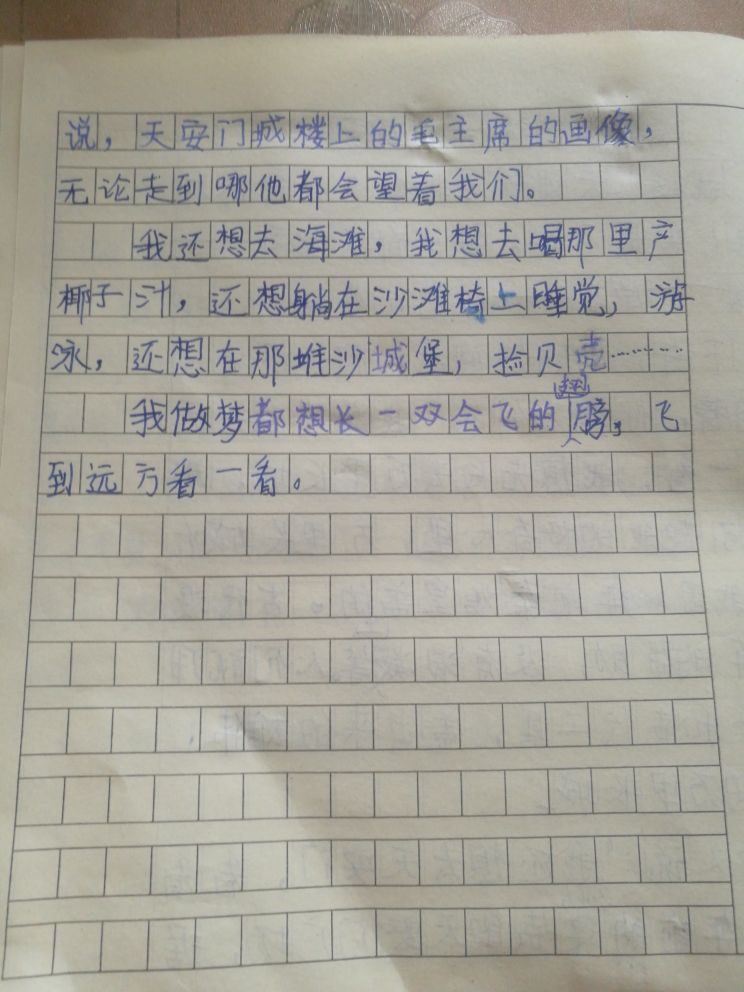 说，天安门城楼上的毛主席的画像，
无论走到哪他都会望着我们。
我还想去海滩，我想去喝那里产
椰子汁，还想躺在沙滩椅上睡觉，游
泳，还想在那堆沙城堡，捡贝壳…………
我做梦都想长一双会飞的翅膀，飞
到远方看一看。